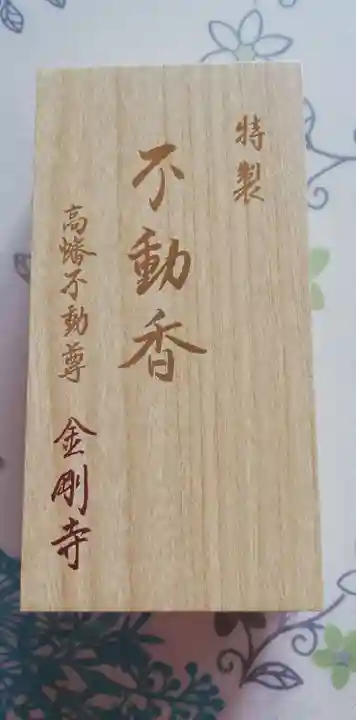 特製
不動香
高幡不動尊 金剛寺